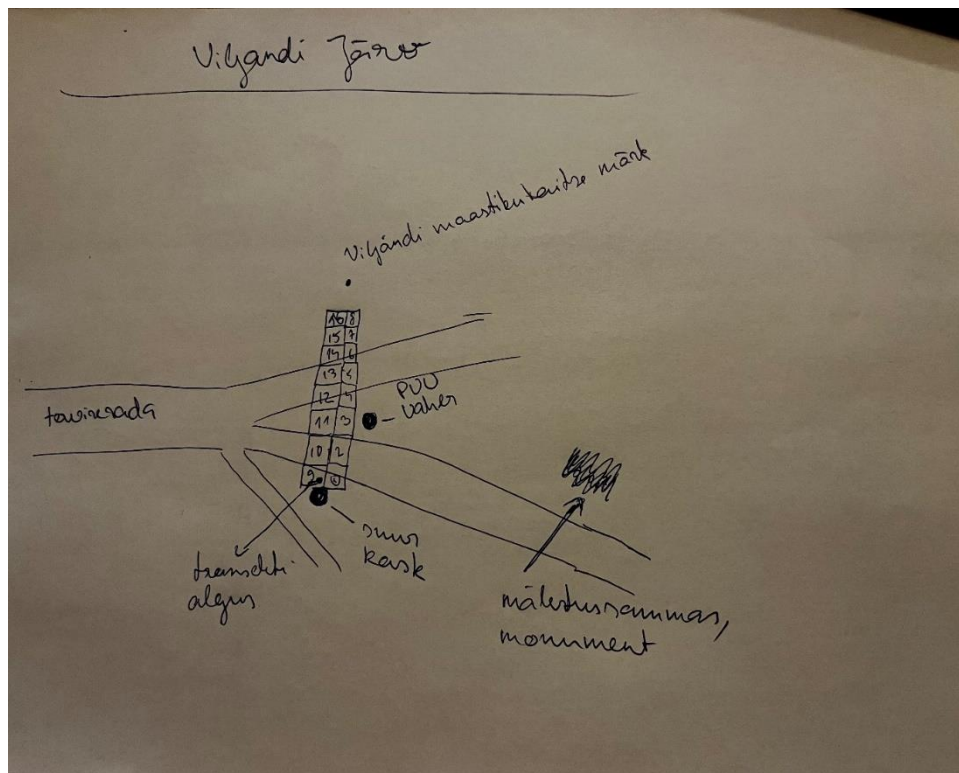 Viljandi Järv
Viljandi maastikukaitse märk
16 8
15 7
14 6
13
12
11 3
10 2
9
PUU
vaher
terviserada
suur
kask
transekti
algus
mälestussammas,
monument